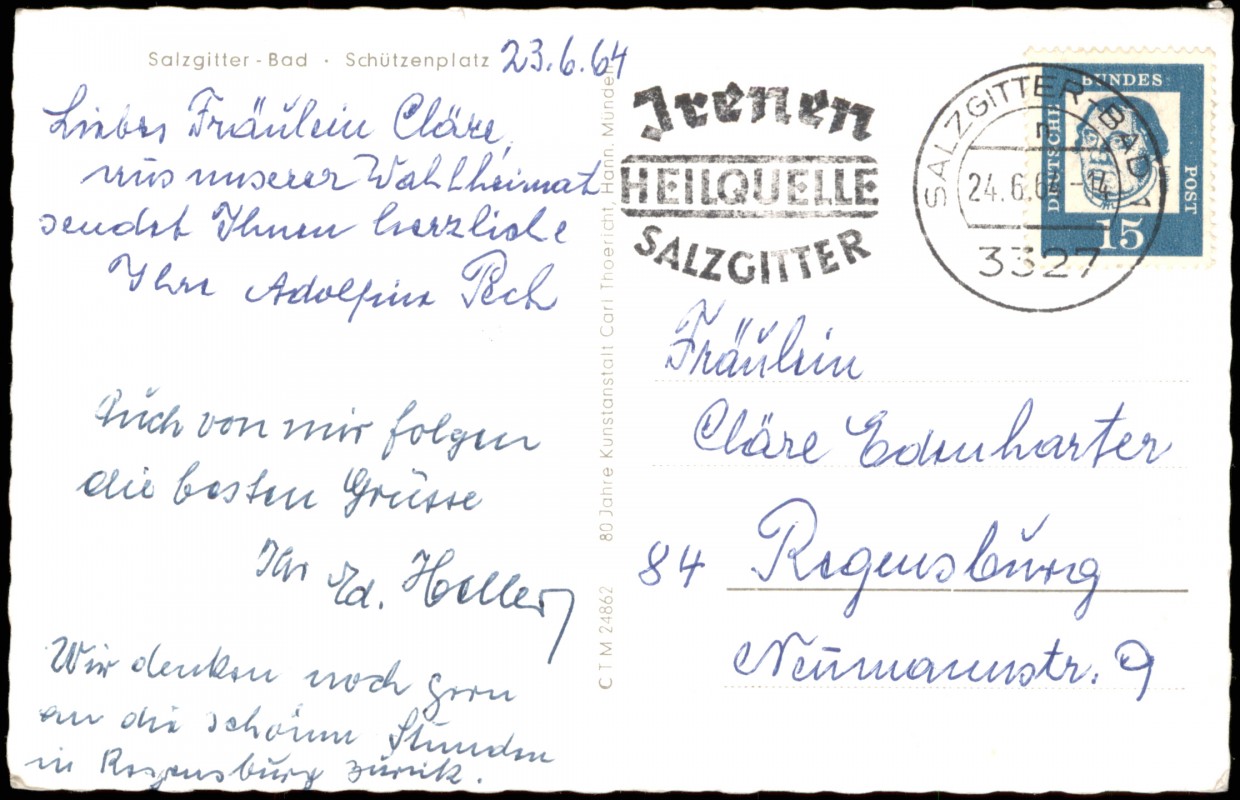 Salzgitter-Bad · Schützenplatz
23.6.64
Liebes Fräulein Cläre,
aus unserer Wahlheimat
sendet Ihnen herzliche
Ihre Adolfine Pech
Auch von mir folgen
die besten Grüsse
Ihr Ed. Heller
Wir denken noch gern
an die schönen Stunden
in Regensburg zurück.
C T M 24862 80 Jahre Kunstanstalt Carl Thoericht, Hann. Münden
Irenen
HEILQUELLE
SALZGITTER
SALZGITTER-BAD 1
n
24.6.64-14
3327
DEUTSCHE
BUNDES
POST
15
Fräulein
Cläre Edenharter
84 Regensburg
Neumannstr. 9